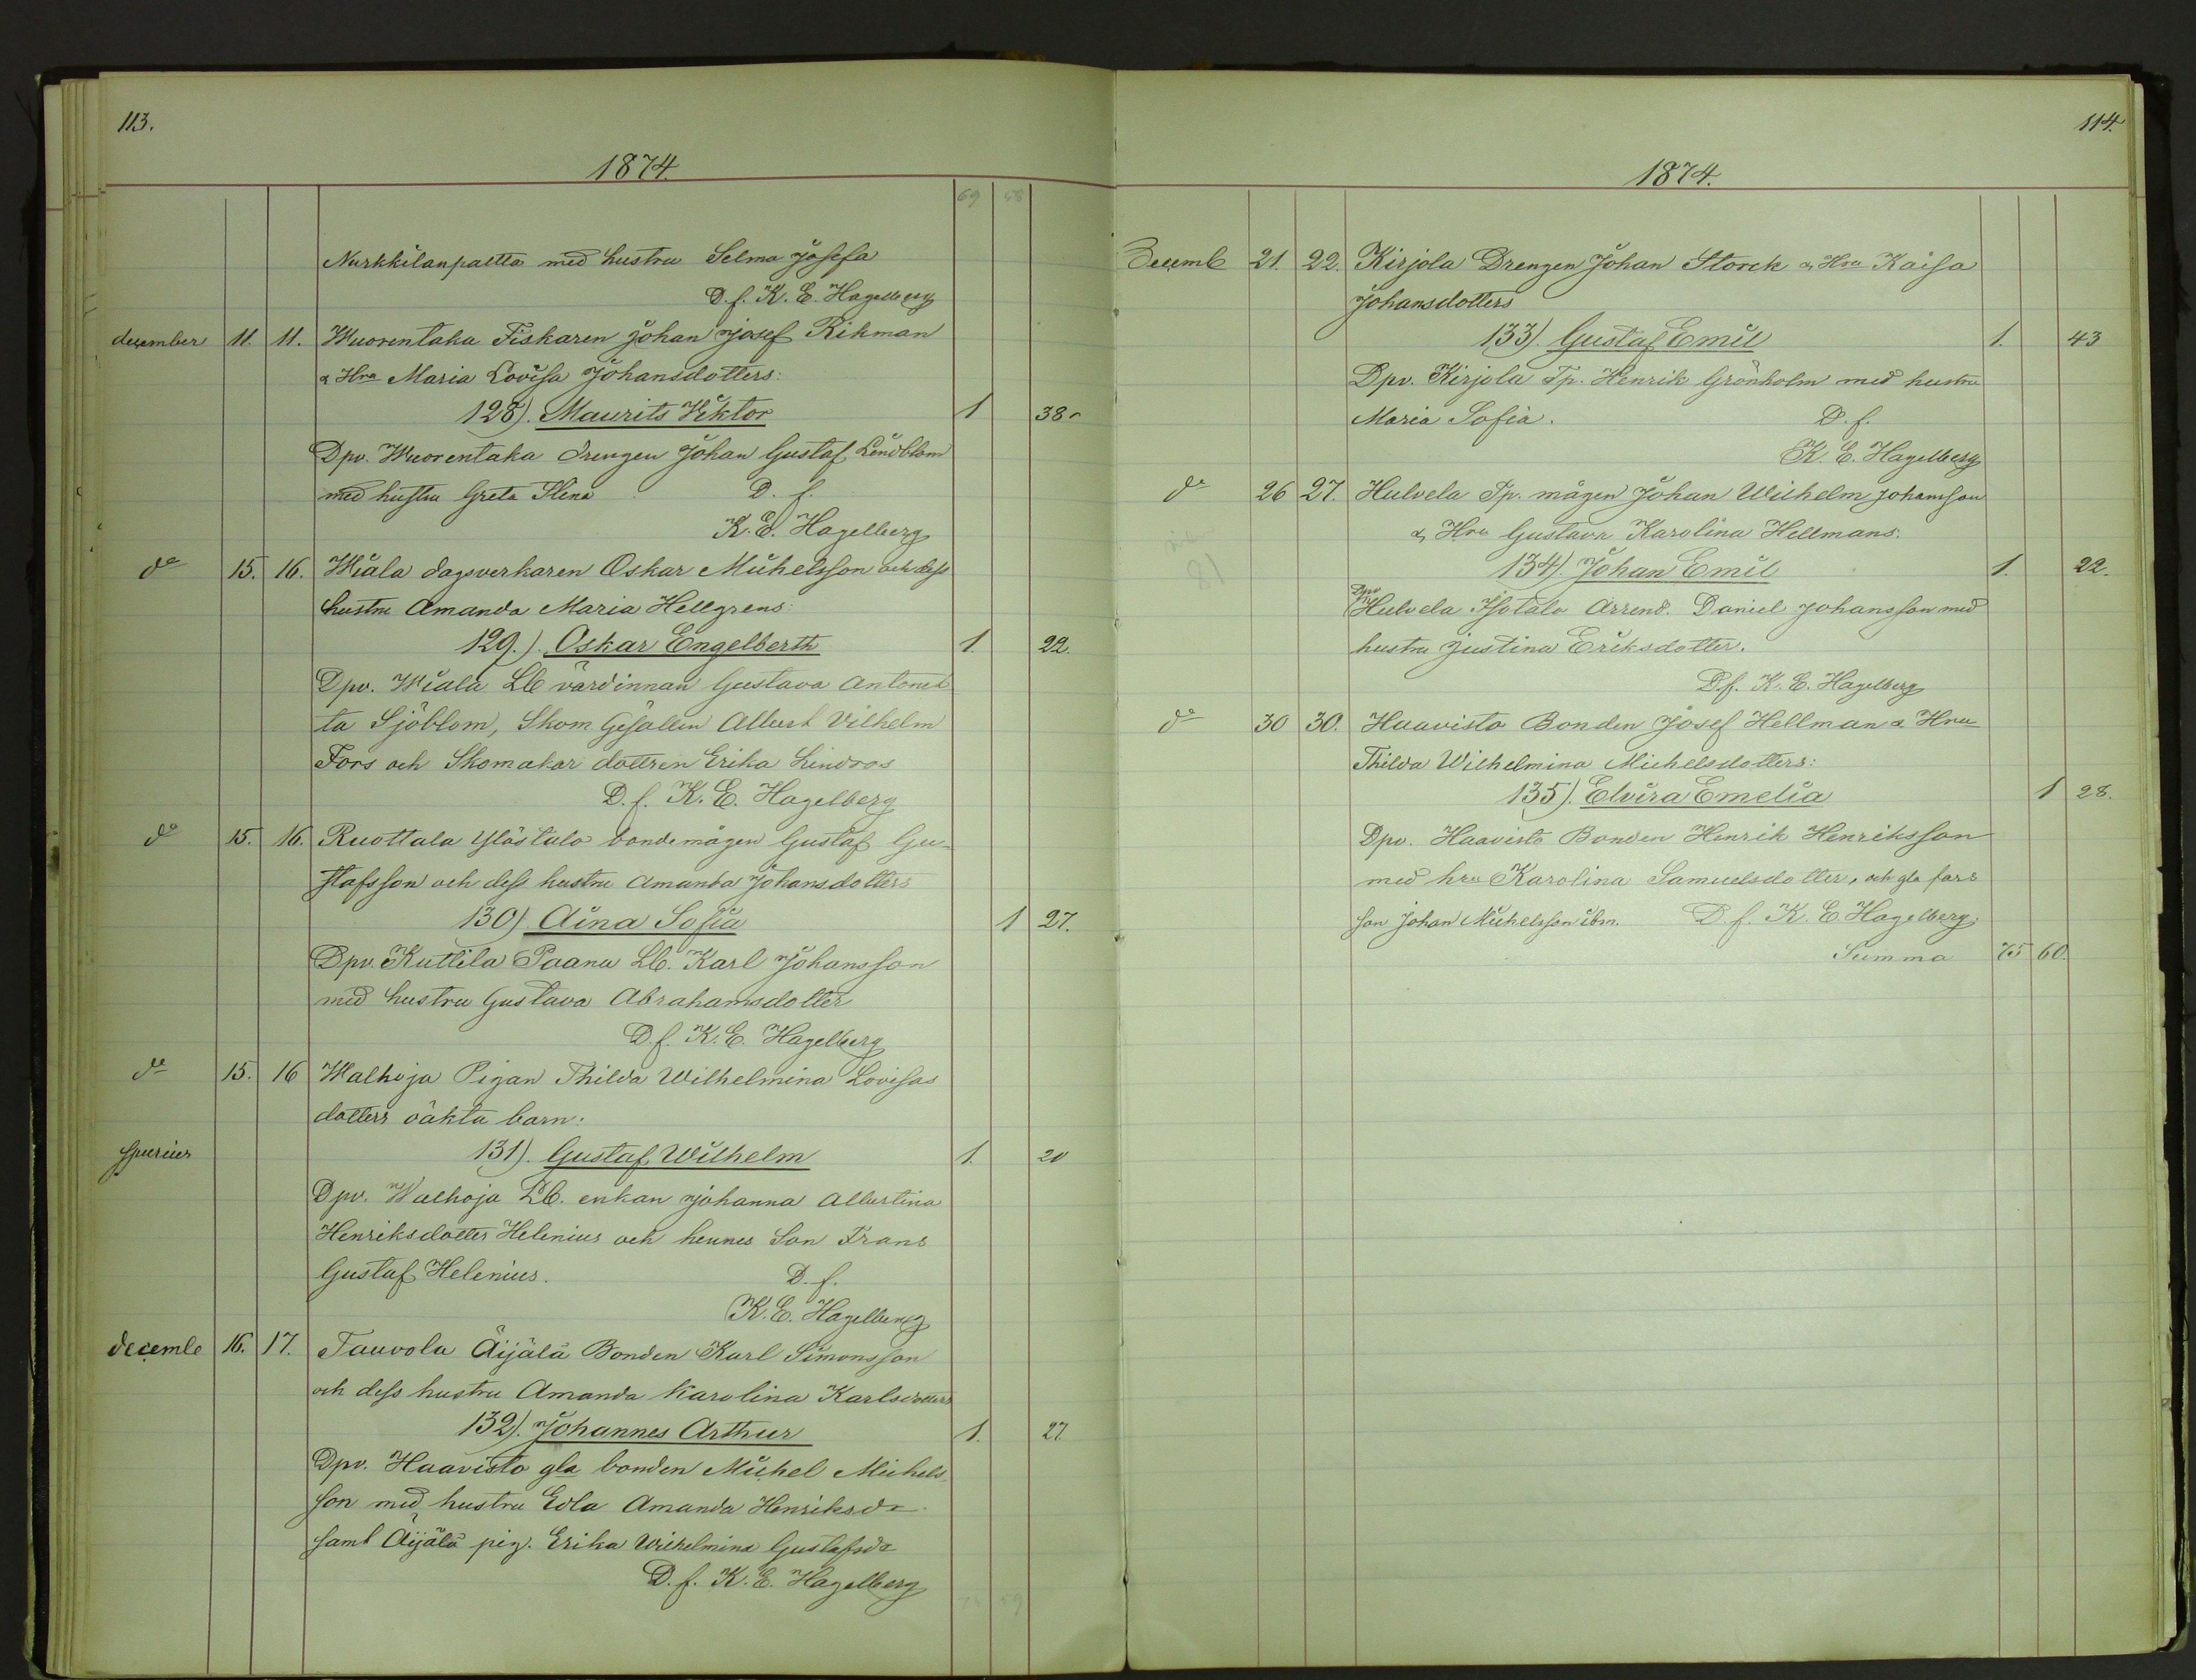 113.
1874.
69 58
Nurkkilanpaltta med hustru Selma Josefa
D. f. K. E. Hagelberg
december 11. 11. Wuorentaka Fiskaren Johan Josef Rikman
& Hru Maria Lovisa Johansdotters:
128). Maurits Viktor 1 38
Dpv. Wuorentaka drengen Johan Gustaf Lindblom
med hustru Greta Stina D. f.
K. E. Hagelberg
do 15. 16. Wiala dagsverkaren Oskar Michelsson och dess
hustru Amanda Maria Hellgrens:
129.). Oskar Engelberth 1. 22.
Dpv. Wiala Lb värdinnan Gustava Antonet
ta Sjöblom, Skom. Gesällen Albert Vilhelm
Fors och Skomakar dottren Erika Lindroos
D. f. K. E. Hagelberg
do 15. 16. Ruottala Ylöstalo bondemågen Gustaf Gu-
stafsson och dess hustru Amanda Johansdotters
130) Aina Sofia 1 27.
Dpv. Kuttila Paanu Lb. Karl Johansson
med hustru Gustava Abrahamsdotter
D. f. K. E. Hagelberg
do 15. 16 Walhoja Pigan Thilda Wilhelmina Lovisas
dotters oäkta barn:
spurius 131). Gustaf Wilhelm 1. 20
Dpv. Walhoja Lb. enkan Johanna Albertina
Henriksdotter Helenius och hennes Son Frans
Gustaf Helenius. D. f.
K. E. Hagelberg
decemb 16. 17. Tauvola Äijälä Bonden Karl Simonsson
och dess hustru Amanda Karolina Karlsdotters
132). Johannes Arthur 1. 27.
Dpv. Haavisto gla bonden Michel Michels-
son med hustru Edla Amanda Henriksdr
samt Äijälä pig. Erika Wilhelmina Gustafsdr
D. f. K. E. Hagelberg
59
114.
1874.
Decemb 21. 22. Kirjola Drengen Johan Storck & Hru Kaisa
Johansdotters
133). Gustaf Emil 1. 43
Dpv. Kirjola Tp. Henrik Grönholm med hustru
Maria Sofia. D. f.
K. E. Hagelberg
do 26 27. Hulvela Tp. mågen Johan Wilhelm Johansson
& Hru Gustava Karolina Hellmans.
81
134) Johan Emil 1. 22.
Dpv Hulvela Isotalo Arrend. Daniel Johansson med
hustru Justina Eriksdotter.
D. f. K. E. Hagelberg
do 30 30. Haavisto Bonden Josef Hellman & Hru
Thilda Wilhelmina Michelsdotters:
135). Elvira Emelia 1 28.
Dpv. Haavisto Bonden Henrik Henriksson
med hru Karolina Samuelsdotter, och gla fars
son Johan Michelsson ibm. D. f. K. E. Hagelberg.
Summa 75 60.